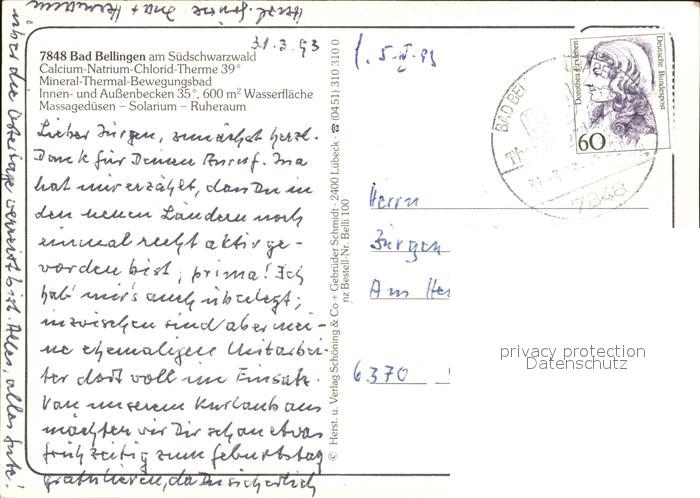 31.3.93
7848 Bad Bellingen am Südschwarzwald
Calcium-Natrium-Chlorid-Therme 39°
Mineral-Thermal-Bewegungsbad
Innen- und Außenbecken 35°, 600 m² Wasserfläche
Massagedüsen – Solarium – Ruheraum
Lieber Jürgen, zunächst herzl.
Dank für Deinen Anruf. Ina
hat mir erzählt, dass Du in
den neuen Ländern noch
einmal recht aktiv ge-
worden bist, prima! Ich
hab' mir's auch überlegt;
inzwischen sind aber mei-
ne ehemaligen Mitarbei-
ter dort voll im Einsatz.
Von unserem Kurlaub aus
möchten wir Dir schon etwas
frühzeitig zum Geburtstag
gratulieren, da Du sicherlich
über die Ostertage verreist bist. Alles, alles Gute!
Herzl. Grüsse Ina + Hermann
© Herst. u. Verlag Schöning & Co + Gebrüder Schmidt · 2400 Lübeck · ☎ (0451) 310 310 0
nz Bestell-Nr. Belli 100
5. IV. 93
Deutsche Bundespost
Dorothea Erxleben
60
BAD BEL
7848
Herrn
Jürgen
Am
6370
privacy protection
Datenschutz